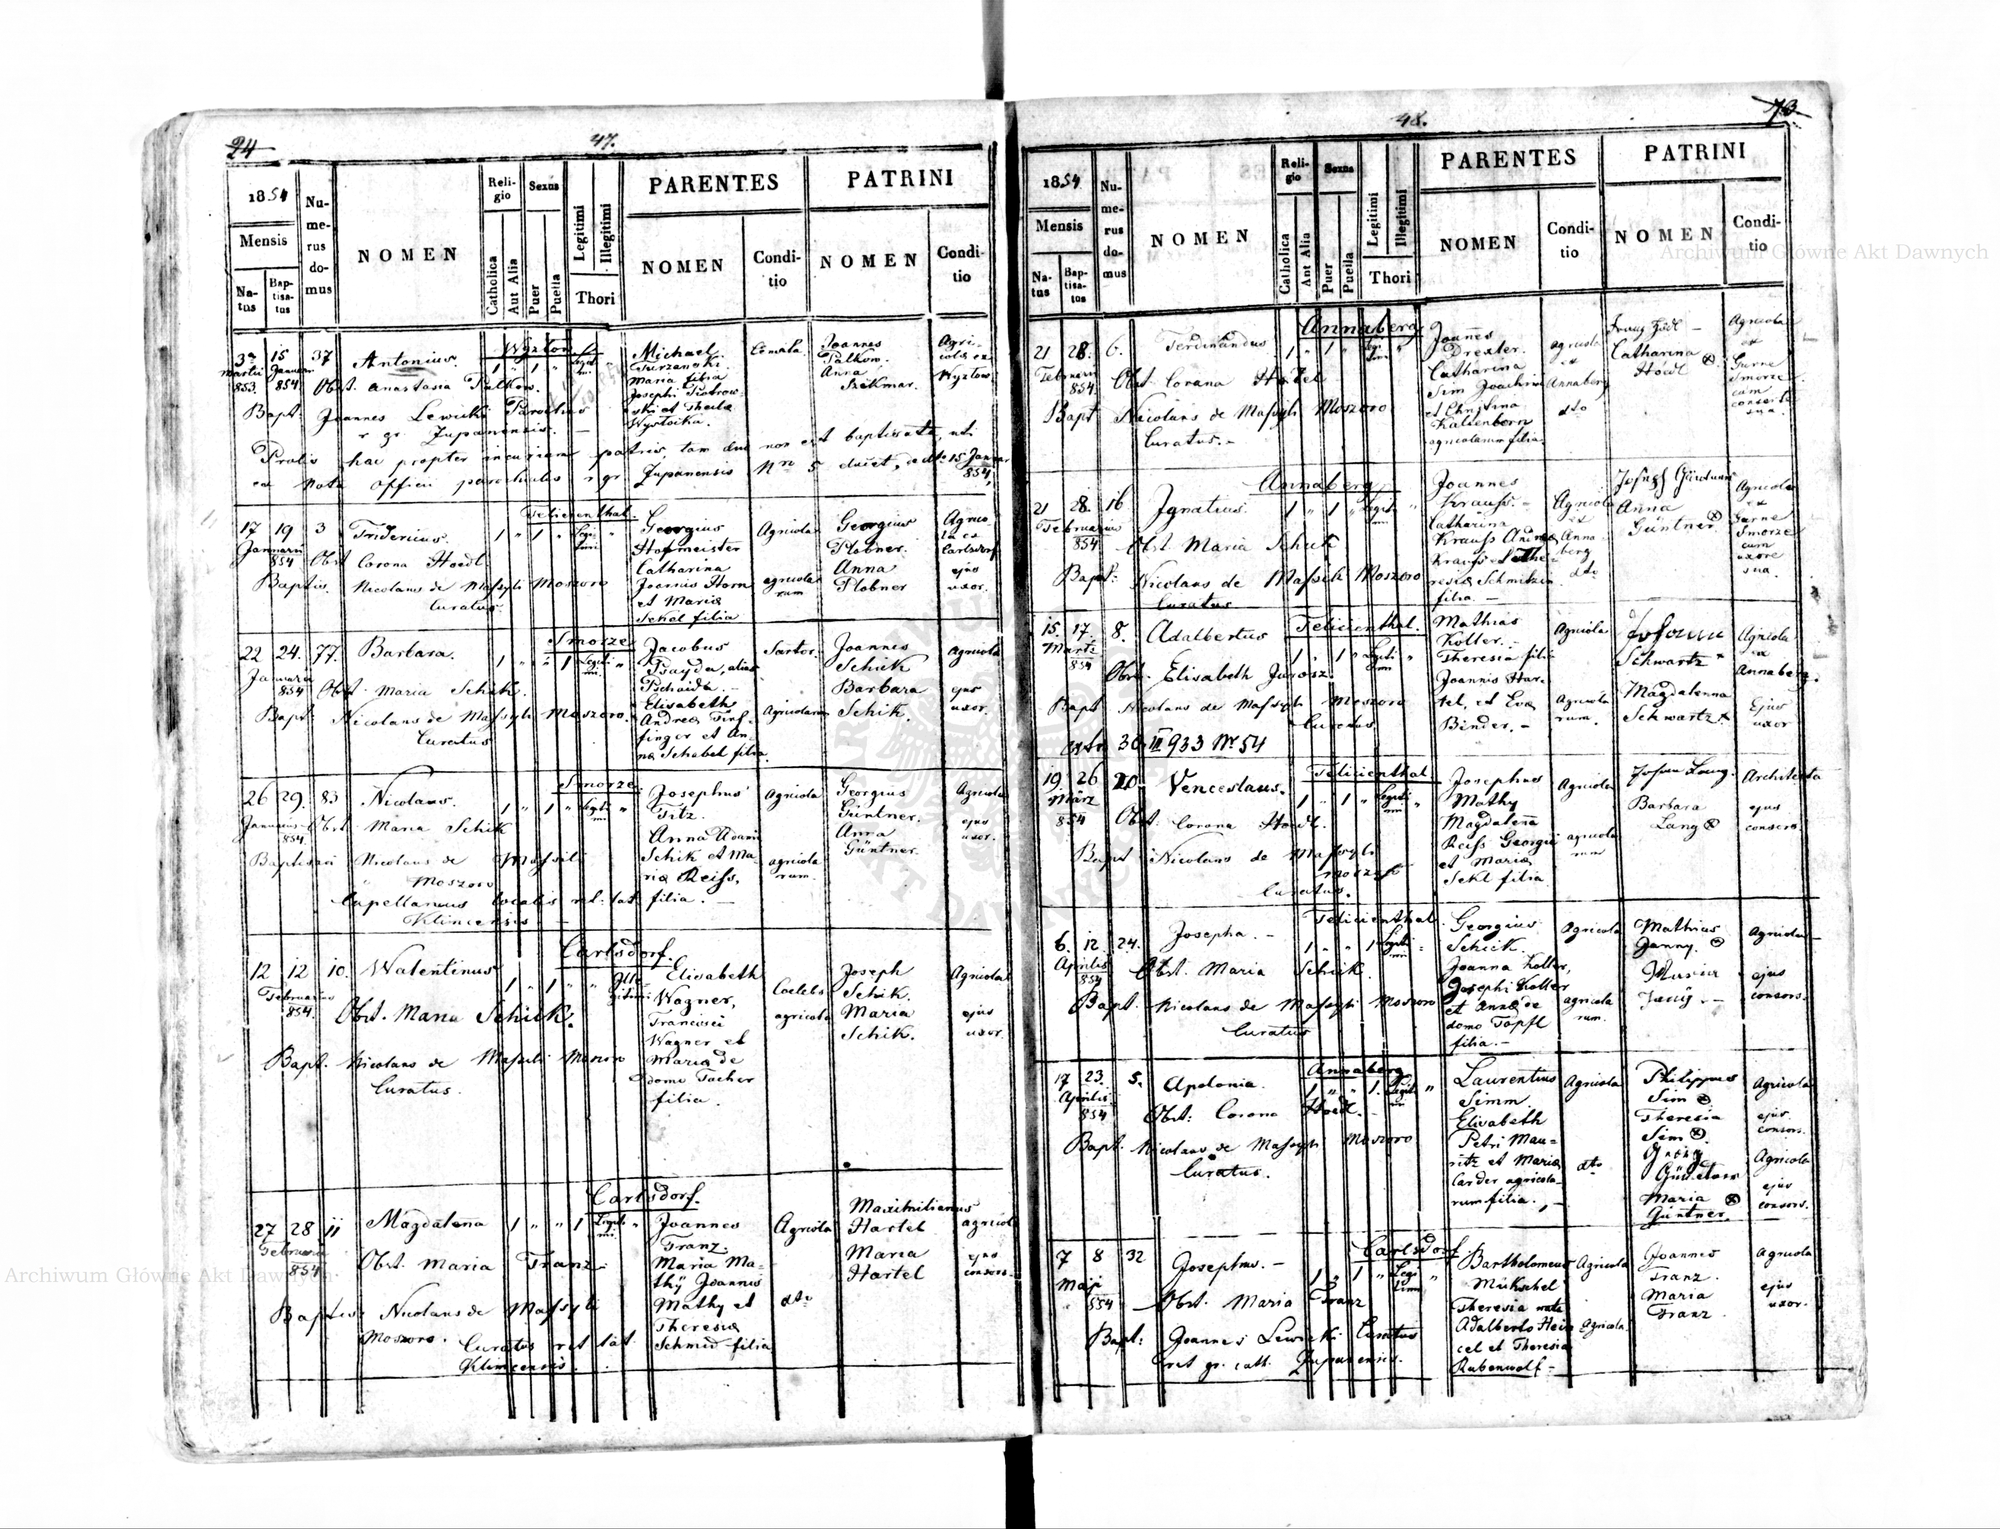 24
47.
1854
Mensis
Natus
Baptisatus
Numerus domus
NOMEN
Religio
Catholica
Aut Alia
Sexus
Puer
Puella
Legitimi
Illegitimi
Thori
PARENTES
NOMEN
Conditio
PATRINI
NOMEN
Conditio
Wyzlow
15 37 Antonius. 1 " 1 "
Januar
853. 854 Obst. Anastasia Palkow.
Bapt. Joannes Lewicki Parochus
r. gr. Zupanensis. —
Michael
Maria filia
Josephi Piotrow-
ski et Thecla
Wysłocka.
Joannes
Palkow.
Anna
Szekmar.
Agri-
cola ex
Wyzlow
Prolis haec propter incuriam patris, tam diu non est baptisata, uti
ex nota officii parochialis r. gr. Zupanensis Nro 5 docet, ddto 15 Januar
854.
Felicienthal.
17 19 3 Fridericus. 1 " 1 " Legitimi "
Januarii
854 Obst Corona Hoedl
Baptis. Nicolaus de Massyli Moszoro
Curatus.
Georgius
Hofmeister
Catharina
Joannis Horn
et Maria
Sekel filia
Agricola
agricola
rum
Georgius
Plobner.
Anna
Plobner
Agrico-
la ex
Carlsdorf
ejus
uxor.
Smorze
22 24. 77. Barbara. 1 " " 1 Legitimi "
Januarii
854 Obst. Maria Schik.
Bapt. Nicolaus de Massyli Moszoro.
Curatus
Jacobus
Tsayda, alias
Pschaida. —
Elisabeth
Andrea Tirf-
finger et An-
na Schabel filia.
Sartor.
Agricolarum
Joannes
Schik
Barbara
Schik.
Agricola
ejus
uxor.
Smorze
26 29. 83 Nicolaus. 1 " 1 " Legitimi "
Januarius
854. Obst. Maria Schik
Baptisavi Nicolaus de Massili
Moszoro
Capellanus localis rit. lat.
Klimcensis —
Josephus
Titz.
Anna Adami
Schik et Ma-
ria Reiss,
filia. —
Agricola
agricola
rum.
Georgius
Güntner.
Anna
Güntner.
Agricola
ejus
uxor.
Carlsdorf.
12 12 10. Walentinus 1 " 1 " "
Februarius
854. Obst. Maria Schik.
Bapt. Nicolaus de Massili Moszoro
Curatus.
Elisabeth
Wagner,
Francisci
Wagner et
Maria de
domo Tacher
filia.
Caelebs
agricola
Joseph
Schik.
Maria
Schik.
Agricola
ejus
uxor.
Carlsdorf.
27 28 11 Magdalena 1 " " 1 Legitimi "
Februarii
854. Obst. Maria Franz.
Baptis. Nicolaus de Massyli
Moszoro. Curatus rit. lat.
Klimcensis.
Joannes
Franz.
Maria Ma-
thÿ Joannis
Mathy et
Theresia
Schmid filia
Agricola
dto
Maximilianus
Hartel
Maria
Hartel
agricola
ejus
consors.
48.
73
1854
Mensis
Natus
Baptisatus
Numerus domus
NOMEN
Religio
Catholica
Aut Alia
Sexus
Puer
Puella
Legitimi
Illegitimi
Thori
PARENTES
NOMEN
Conditio
PATRINI
NOMEN
Conditio
Annaberg
21 28. 6. Ferdinandus 1 " 1 " Legitimi "
Februarii
854. Obst Corona Hödel
Bapt Nicolaus de Massyli Moszoro
Curatus. —
Joannes
Drexler.
Catharina
Sim Joachim
et Christina
Kaltenborn
agricolarum filia.
agricola
ex
Annaberg
dto
Franz Hödl —
Catharina
Hoedl
Agricola
ex
Gurne
Smorze
cum
consorte
sua.
Annaberg
21 28. 16 Ignatius. 1 " 1 " Legitimi "
Februarius
854 Obst. Maria Schik
Bapt: Nicolaus de Massili Moszoro
Curatus
Joannes
Krauss. —
Catharina
Krauss Andrea
Krauss et The-
resia Schmitzin
filia. —
Agricola
ex
Anna-
berg
dto
Joseph Güntner
Anna
Güntner
Agricola
ex
Gurne
Smorze
cum
uxore
sua.
Felicienthal.
15. 17. 8. Adalbertus 1 " 1 " Legitimi "
Martii
854 Obst. Elisabeth Jurosz.
Bapt Nicolaus de Massyli Moszoro
Curatus.
30 III 933 Nr 54
Mathias
Koller. —
Theresia filia
Joannis Har-
tel, et Eva
Binder. —
Agricola
Agricola
rum.
Johann
Schwartz
Magdalenna
Schwartz
Agricola
ex
Annaberg.
Ejus
uxor
Felicienthal
19. 26 20. Venceslaus. 1 " 1 " Legitimi "
März
854 Obst. Corona Hoedl.
Bapt Nicolaus de Massyli
Moszoro
Curatus.
Josephus
Mathy
Magdalena
Reiss Georgii
et Maria
Sekl filia
Agricola
agricola
rum
Johann Lang.
Barbara
Lang
Architecta
ejus
consors.
Felicienthal
6. 12. 24. Josepha. — 1 " " 1 Legitimi "
Aprilis
854 Obst. Maria Schik.
Bapt. Nicolaus de Massyli Moszoro
Curatus
Georgius
Schick.
Joanna Koller,
Josephi Koller
et Anna de
domo Töpfl
filia. —
Agricola
agricola
rum.
Mathias
Janny.
Maria
Janÿ. —
Agricola
ejus
consors.
Annaberg
17 23. 5. Apolonia. 1 " " 1. Legitimi "
Aprilis
854 Obst: Corona Hoedl. —
Bapt. Nicolaus de Massyli Moszoro
Curatus.
Laurentius
Simm.
Elisabeth
Petri Mau-
ritz et Maria
Carder agricola-
rum filia. —
Agricola
dto
Philippus
Sim
Theresia
Sim
Georg
Güntner
Maria
Güntner.
Agricola
ejus
consors.
Agricola
ejus
consors.
Carlsdorf
7 8 32 Josephus. — 1 " 1 " Legitimi "
Maji
854 Obst. Maria Franz
Bapt: Joannes Lewicki Curatus
rit gr. cath. Zupanensis.
Bartholomeus
Mükschel
Theresia nata
Adalberto Hein
cel et Theresia
Rubenwolf —
Agricola
Agricola.
Joannes
Franz.
Maria
Franz.
Agricola
ejus
uxor.
Archiwum Główne Akt Dawnych
Archiwum Główne Akt Dawnych